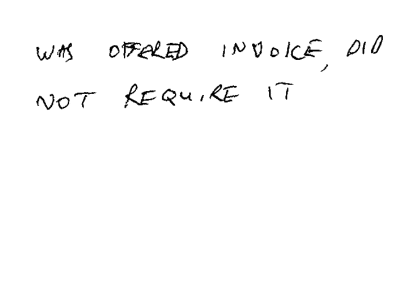 WAS OFFERED INVOICE, DID
NOT REQUIRE IT